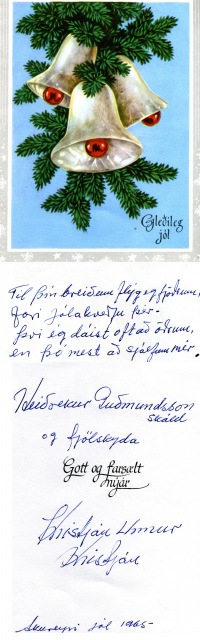 Gleðileg
jól
Til þín breiðum fleyg fjöðrum,
fari jólakveðja þer-
því ég dáist oft að öðrum,
en þó mest að sjálfum mér.
Heiðrekur Guðmundsson
skáld
og fjölskylda
Gott og farsælt
nýár
Kristján
Akureyri jól 1965-